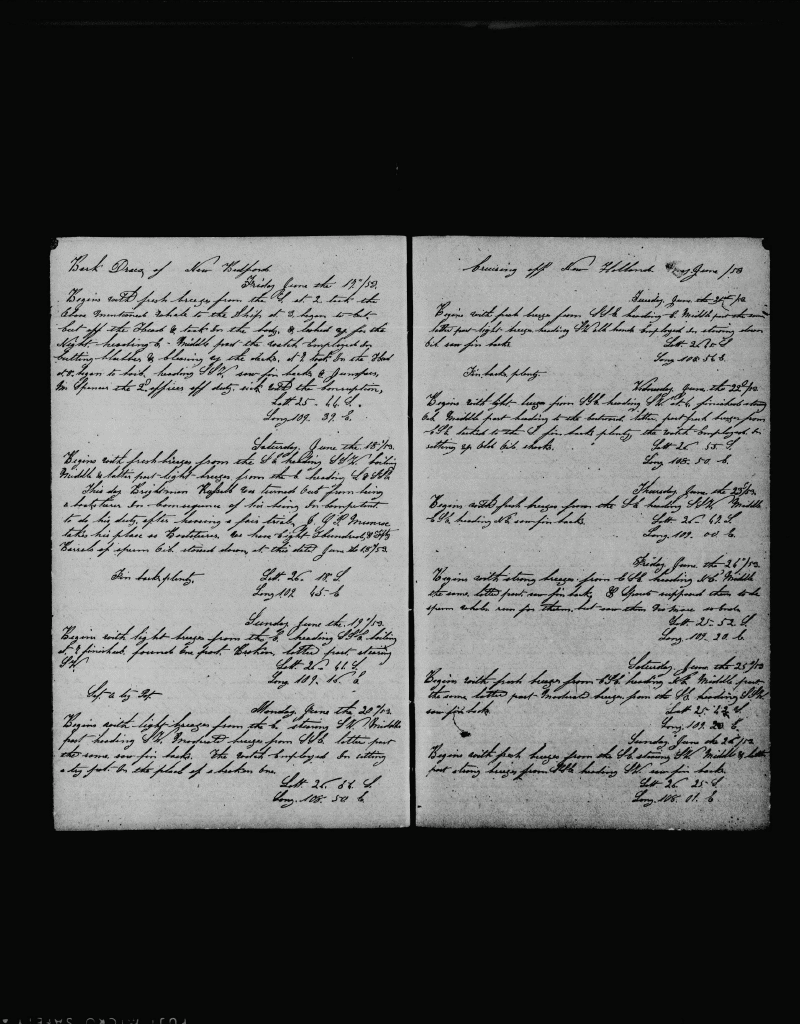 Bark Draco of New Bedford
Friday June the 17th/53
Begins with fresh breezes from the S. at 2 took the
above mentioned whale to the Ship at 3 began to cut
cut off the Head & took in the body, & lashed up for the
Night heading E. Middle part the watch Employed in
Cutting blubber & clearing up the decks. at 7 took in the Head
at 8 began to boil heading SSW. saw fin backs & Grampus,
Mr Spencer the 2d officer off duty, sick with the
Latt 25 - 44 S.
Long 109. 39 E.
Saturday, June the 18th/53
Begins with fresh breezes from the SE heading SSW. boiling
Middle & latter part light breezes from the E heading S
This day Brightman we turned out from being
a boatsteerer in consequence of his being In competent
to do his duty, after having a fair trial, Munroe
takes his place as Boatsteerer. We have Eight Hundred &
Barrels of sperm oil stowed down, at this date June the 18th/53
Fin backs plenty Latt. 26. 18. S.
Long 109 45 E
Sunday June the 19th/53
Begins with light breezes from the E. heading SSE boiling
at 7 finished, found one pot Broken, latter part steering
SW. Latt 26 41 S.
Long 109. 16 E
Set a try Pot
Monday June the 20th/53
Begins with light breezes from the E steering SW Middle
part heading SW. Moderate breezes from latter part
the same, saw fin backs. The watch Employed in setting
a try pot in the place of a broken one.
Latt. 26. 54. S.
Long. 108. 50 E
Cruising off New Holland June /53
Tuesday June the 21st/53
Begins with fresh breezes from heading E. Middle part the same
latter part light breezes heading SW all hands Employed in stowing down
oil saw fin backs Latt 26 S
Long 108 56 E.
Fin backs plenty
Wednesday June the 22d/53
Begins with light breezes from SSE heading SW. at 6 finished stowing
oil. Middle part heading to the Eastward, latter part fresh breezes from
ESE tacked to the S fin backs plenty, the watch Employed in
setting up old oil shooks. Latt 26 55 S.
Long 108. 50 E.
Thursday June the 23d/53
Begins with fresh breezes from the SE heading SSW Middle
ESE heading NE saw fin backs. Latt 26. 49. S.
Long. 109. 00 E.
Friday June the 24th/53
Begins with strong breezes from ESE heading NE Middle
the same, latter part, saw fin backs & Spouts supposed them to be
sperm whale run for them, but saw them No more so
Latt. 25-52 S.
Long. 109. 20 E
Saturday June the 25th/53
Begins with fresh breezes from ESE heading NE. Middle part
the same latter part Moderate breezes from the SE heading SSW
saw fin backs Latt 25 42 S
Long 109. 20 E.
Sunday June the 26th/53
Begins with fresh breezes from the SE steering SW Middle & latter
part strong breezes from SSE heading SW. saw fin backs
Latt 26 25 S
Long 108. 01. E